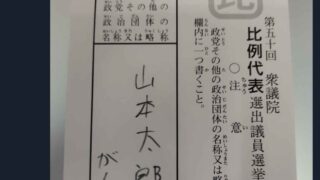 第五十回 衆議院
比例代表選出議員選挙
○注意
政党その他の政治団体の名称又は略
欄内に一つ書くこと。
政党その他の
政治団体の
名称又は略称
山本太郎
がん